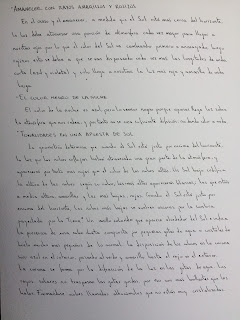 "AMANECER CON RAYOS AMARILLOS Y ROJIZOS
En el ocaso y el amanecer, a medida que el Sol está más cerca del horizonte,
la luz debe atravesar una porción de atmósfera cada vez mayor para llegar a
nuestros ojos por lo que el color del Sol va cambiando primero a anaranjado, luego
rojizo; esto se debe a que se van dispersando cada vez más las longitudes de onda
corta (azul y violeta) y sólo llega a nosotros la luz más roja y amarilla de onda
larga.
EL COLOR NEGRO DE LA NOCHE
El color de la noche es azul, pero lo vemos negro porque apenas llega luz sobre
la atmósfera que nos rodea, y por tanto no se ve suficiente difusión no dando color a nada.
TONALIDADES EN UNA PUESTA DE SOL
La geometría determina que cuando el Sol está justo por encima del horizonte,
la luz que las nubes reflejan habrá atravesado una gran parte de la atmósfera, y
aparecerá por tanto más rojas que el color de las nubes altas. Un Sol bajo refleja
la altura de las nubes según su color, las más altas aparecerán blancas, las que estén
a media altura amarillas y las más bajas, rojas. Cuando el Sol está justo por
encima del horizonte, las nubes más bajas se vuelven oscuras por la sombra
proyectada por la Tierra. Un anillo coloreado que aparece alrededor del Sol evidencia
la presencia de una nube distante compuesta por pequeñas gotas de agua o cristales de
hielo mucho más pequeños de lo normal. La dispersión de los colores en la corona
son azul en el interior, pasando al verde y amarillo hasta el rojo en el exterior.
La corona se forma por la difracción de la luz en las gotas de agua. Los
rayos solares no traspasan las gotas grandes, por eso son más brillantes que los
halos formándose sobre llamadas altocúmulos que no estén muy cristalizadas.